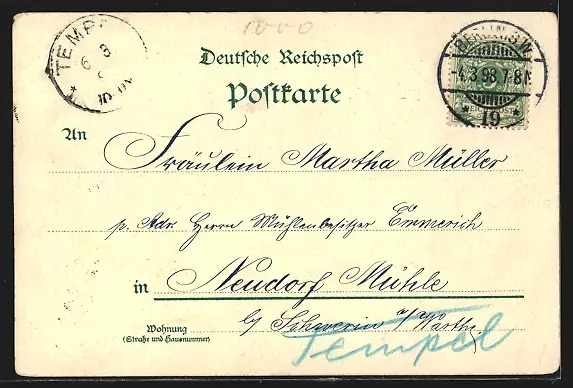 1000
TEMPE
6 3
Deutsche Reichspost
Postkarte
BERLIN S.W.
-4.3.98.7-8N
* 19 *
REICHSPOST
An Fräulein Martha Müller
p. Adr. Herrn Mühlenbesitzer Emmerich
in Neudorf Mühle
b/ Schwerin a/ Warthe
Tempel
Wohnung
(Straße und Hausnummer)